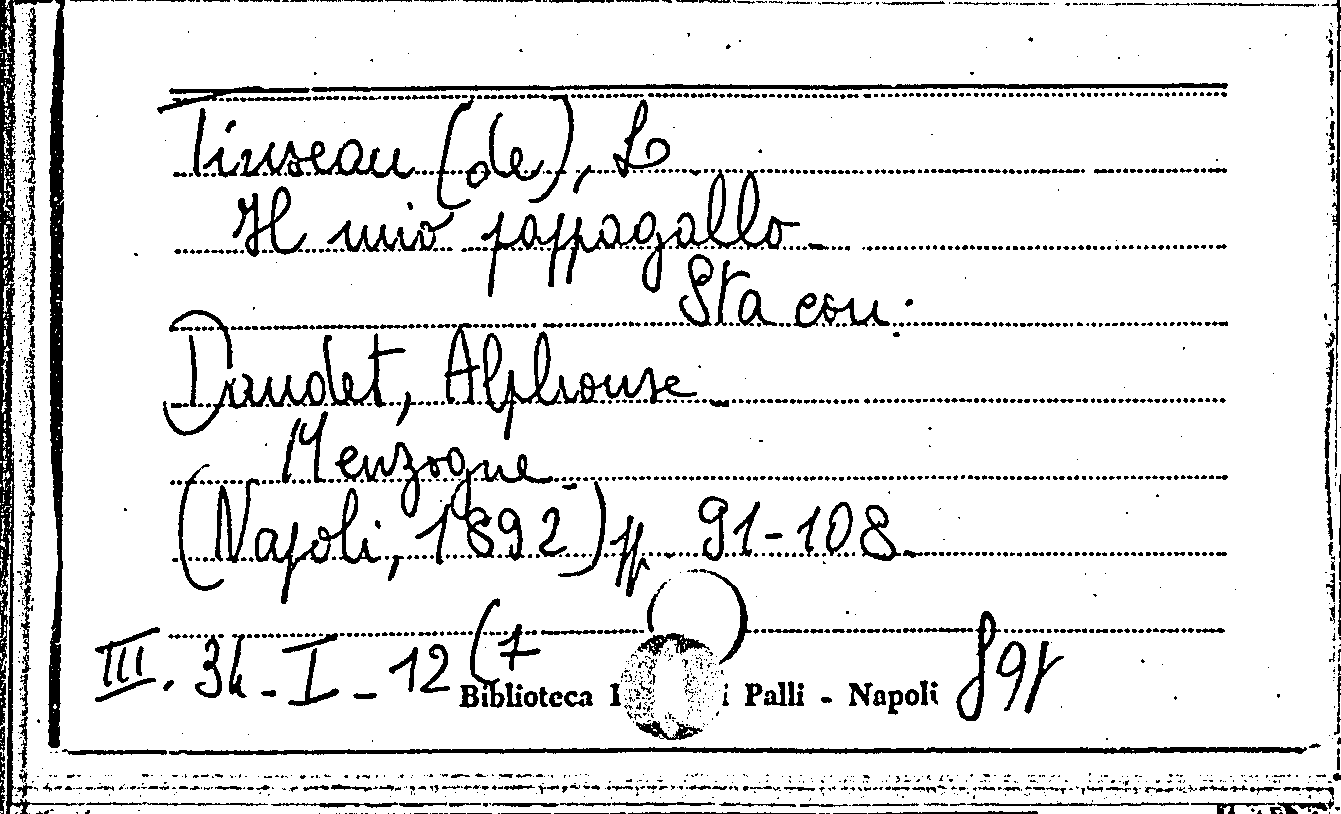 Tinseau (de), L
Il mio pappagallo -
Sta con:
Daudet, Alphonse -
Menzogne -
(Napoli, 1892) pp. 91-108.
III. 34 - I - 12 (7
Biblioteca Palli - Napoli